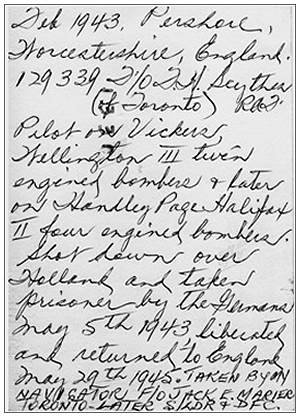 Feb 1943. Pershore,
Worcestershire, England.
129339 F/O J.H. Scythes
(of Toronto) RAF.
Pilot on Vickers,
Wellington III twin
engined bombers & later
on Handley Page Halifax
II four engined bombers.
Shot down over
Holland and taken
prisoner by the Germans
May 5th 1943, liberated
and returned to England
May 29th 1945. TAKEN BY MY
NAVIGATOR F/O JACK E. MARIER
TORONTO. LATER S/LDR &